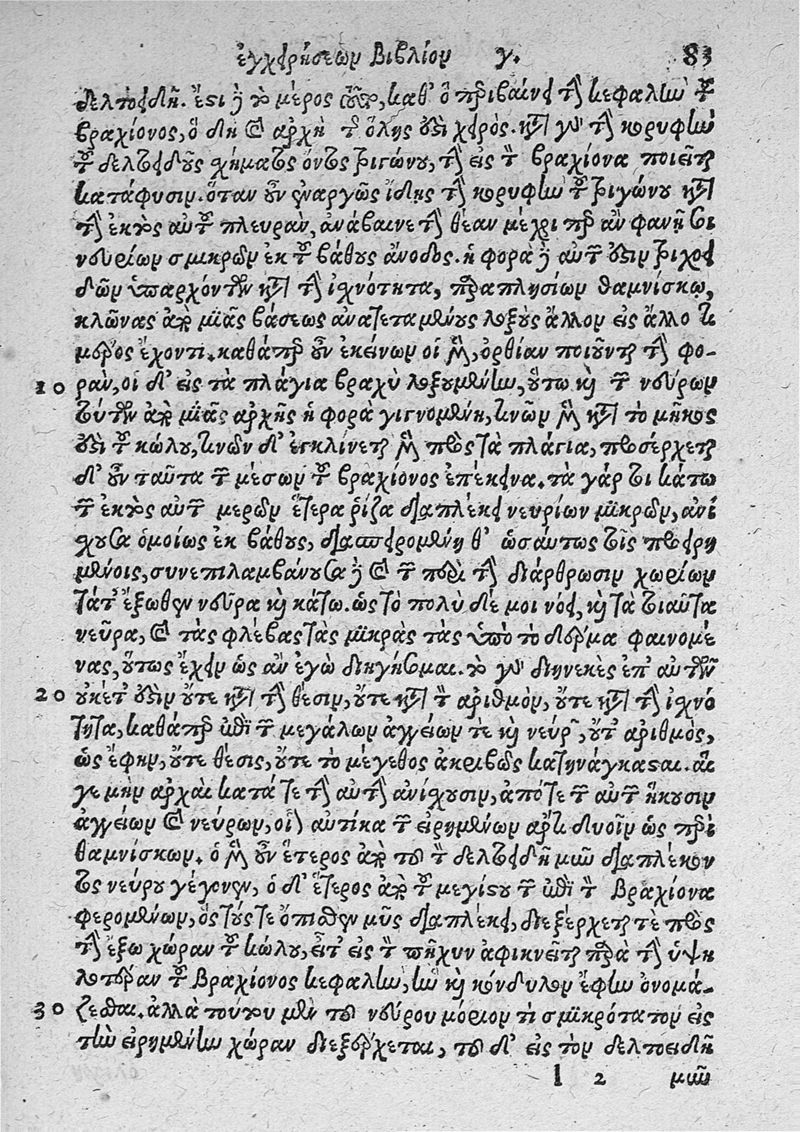 ἐγχειρήσεων Βιβλίον γ. 83
δελτοειδῆ. ἔστι δὲ τὸ μέρος τοῦτο, καθ' ὃ περιβαίνει τὴν κεφαλὴν τοῦ
βραχίονος, ὃ δὴ καὶ ἀρχὴ τῆς ὅλης ἐστὶ χειρός. κατὰ γοῦν τὴν κορυφὴν
τοῦ δελτοειδοῦς σχήματος ὄντος τριγώνου, τὴν εἰς τὸν βραχίονα ποιεῖται
κατάφυσιν. ὅταν οὖν ἐναργῶς ἴδῃς τὴν κορυφὴν τοῦ τριγώνου κατὰ
τὴν ἐκτὸς αὐτοῦ πλευρὰν, ἀνάβαινε τὴν θέαν μέχρι περ ἂν φανῇ σοι
νευρίων σμικρῶν ἐκ τοῦ βάθους ἄνοδος. ἡ φορὰ δὲ αὐτῶν ἐστιν τριχοει
δῶν ὑπαρχόντων κατὰ τὴν ἰχνότητα, παραπλησίων θαμνίσκῳ,
κλῶνας ἀπὸ μιᾶς βάσεως ἀνατεταμένους λοξοὺς ἄλλον εἰς ἄλλο τι
μέρος ἔχοντι. καθάπερ οὖν ἐκείνων οἱ μὲν, ὀρθίαν ποιοῦνται τὴν φο-
10 ρὰν, οἱ δ' εἰς τὰ πλάγια βραχὺ λοξουμένην, οὕτω καὶ τῶν νεύρων
τούτων ἀπὸ μιᾶς ἀρχῆς ἡ φορὰ γιγνομένη, τινῶν μὲν κατὰ τὸ μῆκος
ἐστὶ τοῦ κώλου, τινῶν δ' ἐγκλίνεται μὲν πρὸς τὰ πλάγια, προσέρχεται
δ' οὖν ταῦτα τῶν μέσων τοῦ βραχίονος ἐπέκεινα. τὰ γάρ τοι κάτω
τῶν ἐκτὸς αὐτῶν μερῶν ἕτερα ῥίζα διαπλέκει νευρίων μικρῶν, ἀνί
χουσα ὁμοίως ἐκ βάθους, διασπειρομένη θ' ὡσαύτως τοῖς προειρη
μένοις, συνεπιλαμβάνουσα δὲ καὶ τῶν περὶ τὴν διάρθρωσιν χωρίων
τά τ' ἔξωθεν νεῦρα καὶ κάτω. ὡς τὸ πολὺ δέ μοι νόει, καὶ τὰ τοιαῦτα
νεῦρα, καὶ τὰς φλέβας τὰς μικρὰς τὰς ὑπὸ τὸ δέρμα φαινομέ
νας, οὕτως ἔχειν ὡς ἂν ἐγὼ διηγήσωμαι. τὸ γοῦν διηνεκὲς ἐπ' αὐτῶν
20 οὐκέτ' ἐστὶν οὔτε κατὰ τὴν θέσιν, οὔτε κατὰ τὸν ἀριθμὸν, οὔτε κατὰ τὴν ἰχνό
τητα, καθάπερ ἐπὶ τῶν μεγάλων ἀγγείων τὲ καὶ νεύρων, οὔτ' ἀριθμὸς,
ὡς ἔφην, οὔτε θέσις, οὔτε τὸ μέγεθος ἀκριβῶς κατηνάγκασται. αἵ
γε μὴν ἀρχαὶ κατά τε τὴν αὐτὴν ἀνίχουσιν, ἀπό τε τῶν αὐτῶν ἥκουσιν
ἀγγείων καὶ νεύρων, οἷον αὐτίκα τῶν εἰρημένων ἄρτι δυοῖν ὡς περὶ
θαμνίσκων. ὁ μὲν οὖν ἕτερος ἀπὸ τοῦ τὸν δελτοειδῆ μῦν διαπλέκον
τος νεύρου γέγονεν, ὁ δ' ἕτερος ἀπὸ τοῦ μεγίστου τῶν ἐπὶ τὸν Βραχίονα
φερομένων, ὃς τούς τε ὄπισθεν μῦς διαπλέκει, διεξέρχεταί τε πρὸς
τὴν ἔξω χώραν τοῦ κώλου, εἶτ' εἰς τὸν πῆχυν ἀφικνεῖται παρὰ τὴν ὑψη
λοτέραν τοῦ Βραχίονος κεφαλὴν, ἣν καὶ κόνδυλον ἔφην ὀνομά-
30 ζεσθαι. ἀλλὰ τούτου μὲν τοῦ νεύρου μόριον τὶ σμικρότατον εἰς
τὴν εἰρημένην χώραν διεξέρχεται, τοῦ δ' εἰς τὸν δελτοειδῆ
l 2 μῦν